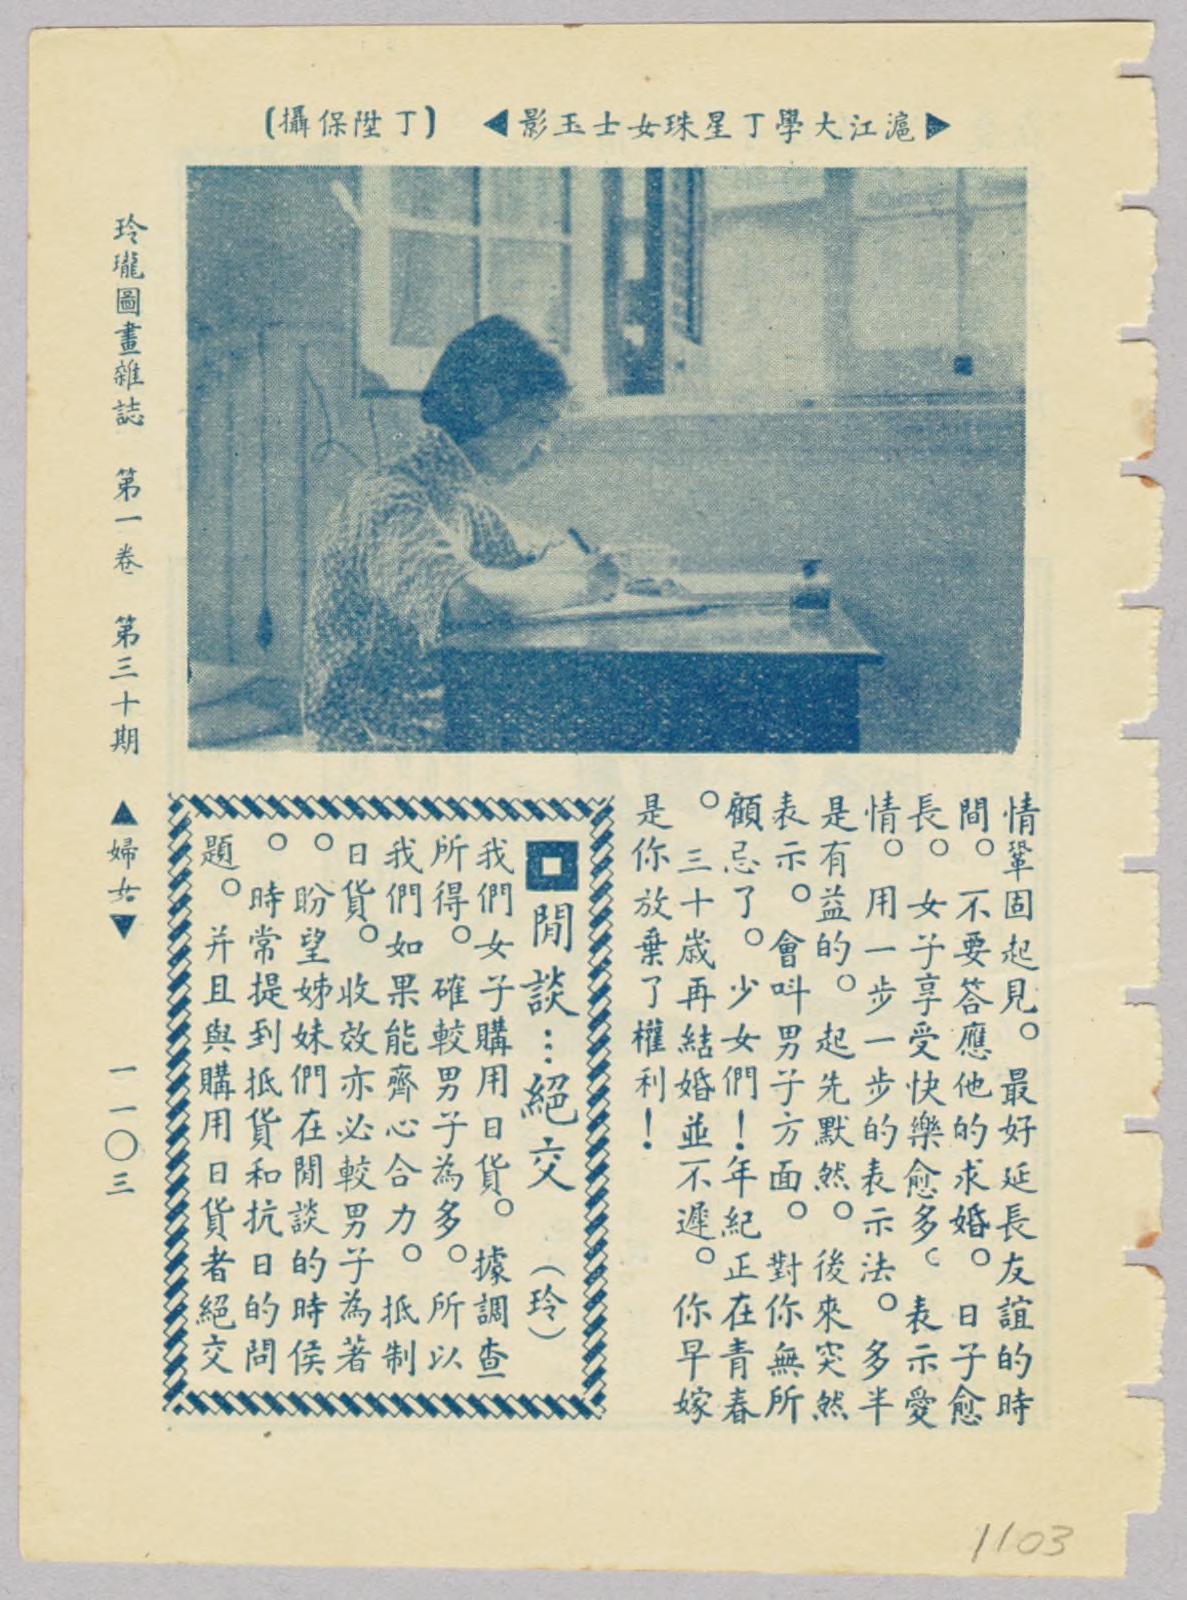 滬江大學丁星珠女士玉影
(丁陞保攝)
情鞏固起見。最好延長友誼的時
間。不要答應他的求婚。日子愈
長。女子享受快樂愈多。表示愛
情。用一步一步的表示法。多半
是有益的。起先默然。後來突然
表示。會叫男子方面。對你無所
顧忌了。少女們！年紀正在青春
。三十歲再結婚並不遲。你早嫁
是你放棄了權利！
閒談：絕交 （玲）
我們女子購用日貨。據調查
所得。確較男子為多。所以
我們如果能齊心合力。抵制
日貨。收效亦必較男子為著
。盼望姊妹們在閒談的時侯
。時常提到抵貨和抗日的問
題。并且與購用日貨者絕交
玲瓏圖畫雜誌 第一卷 第三十期 ▲婦女▼ 一一〇三
1103